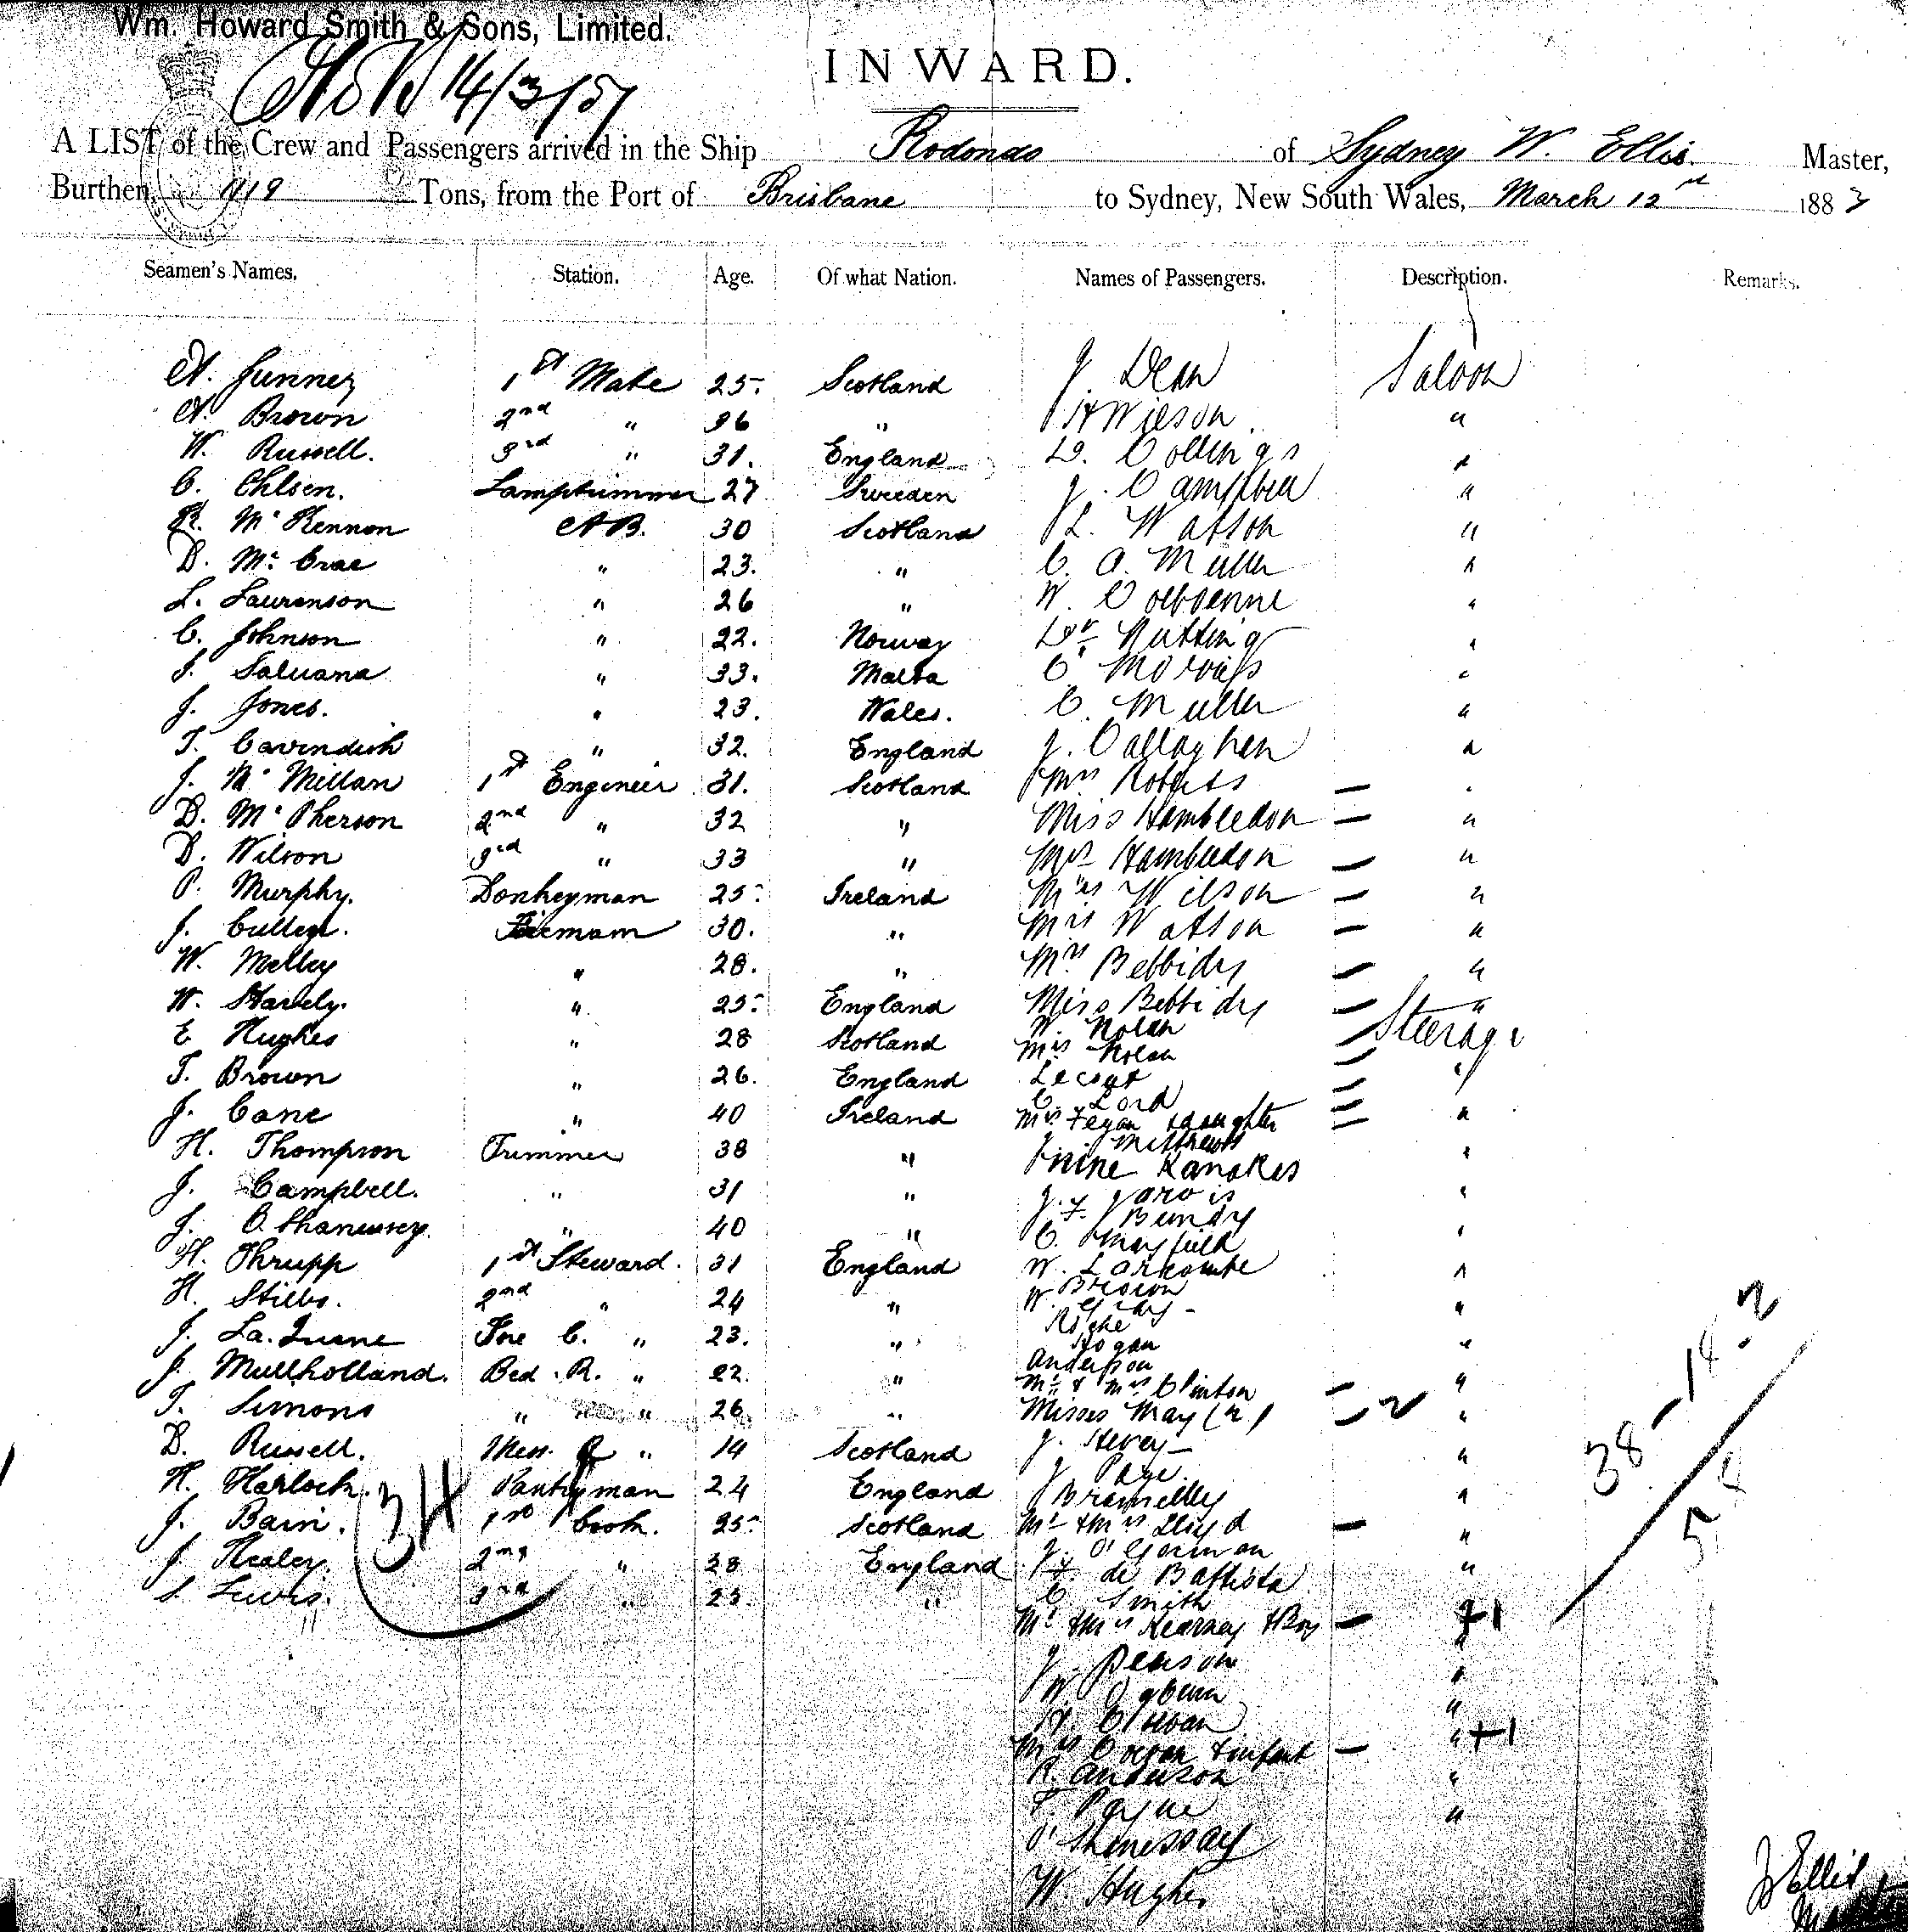 Wm. Howard Smith & Sons, Limited.
14/3/5
INWARD.
A LIST of the Crew and Passengers arrived in the Ship Rodondo of Sydney W. Ellis. Master,
Burthen, 1119 Tons, from the Port of Brisbane to Sydney, New South Wales, March 12 1883
Seamen's Names. Station. Age. Of what Nation. Names of Passengers. Description. Remarks.
A. 1st Mate 25. Scotland J. Dean Saloon
A. Brown 2nd " 36 " H Wilson "
W. Russell. 3rd " 31. England D. Collings "
C. Ohlsen. Lamptrimmer 27 Sweden J. Campbell "
R. Mc Kennon AB. 30 Scotland L. Watson "
D. Mc Crae " 23. " C. A. Muller "
L. Laurenson " 26 " W. "
C. Johnson " 22. Norway Dr Nutting "
J. Saluana " 33. Malta C. "
J. Jones. " 23. Wales. C. Muller "
T. Cavendish " 32. England J. Callaghan "
J. Mc Millan 1st Engineer 31. Scotland Mrs Roberts — "
D. Mc Pherson 2nd " 32 " Miss Hambledon — "
D. Wilson 3rd " 33 " Mrs Hambledon — "
P. Murphy. Donkeyman 25. Ireland Mrs Wilson — "
J. Cullen. Fireman 30. " Mrs Watson — "
W. Melley " 28. " Mrs Bebbidy — "
W. Stavely. " 25. England Miss Bebbidy — "
E Hughes " 28 Scotland W. Nolan — Steerage
Mrs Nolan —
T. Brown " 26. England "
C. Lord —
J. Cane " 40 Ireland Mrs Fegan & daughter — "
J. Matthews
H. Thompson Trimmer 38 " nine Kanakas "
J. Campbell. " 31 " J. Jarvis "
J. F. Bundy
J. O. " 40 " C. Mayfield "
H. Thrupp 1st Steward. 31 England W. Larcombe "
W. Brown
H. Stibbs. 2nd " 24 " W. Gray - "
Roche
J. La. Fore C. " 23. " Hogan "
Anderson
J. Mullholland. Bed. R. " 22. " Mr & Mrs Clinton — "
T. Simons " " " 26 " Misses May (2) — 2 "
D. Russell. Mess. R " 14 Scotland J. "
J. Page.
H. Harlock. Pantryman 24 England "
J. Bain. 1st Cook. 25. Scotland Mr & Mrs Lloyd — "
J. O'Gorman
J. Healey. 2nd " 38 England F. di Battista "
S. Lewis. 3rd " 23. " C. Smith
34
Mr & Mrs Kearney & Boy — +1
J. Pearson "
W. Ogburn "
"
Mrs & infant — " +1
R. Anderson "
F. Payne "
O'
W. Hughes
38 - 18 . 2
58
Ellis